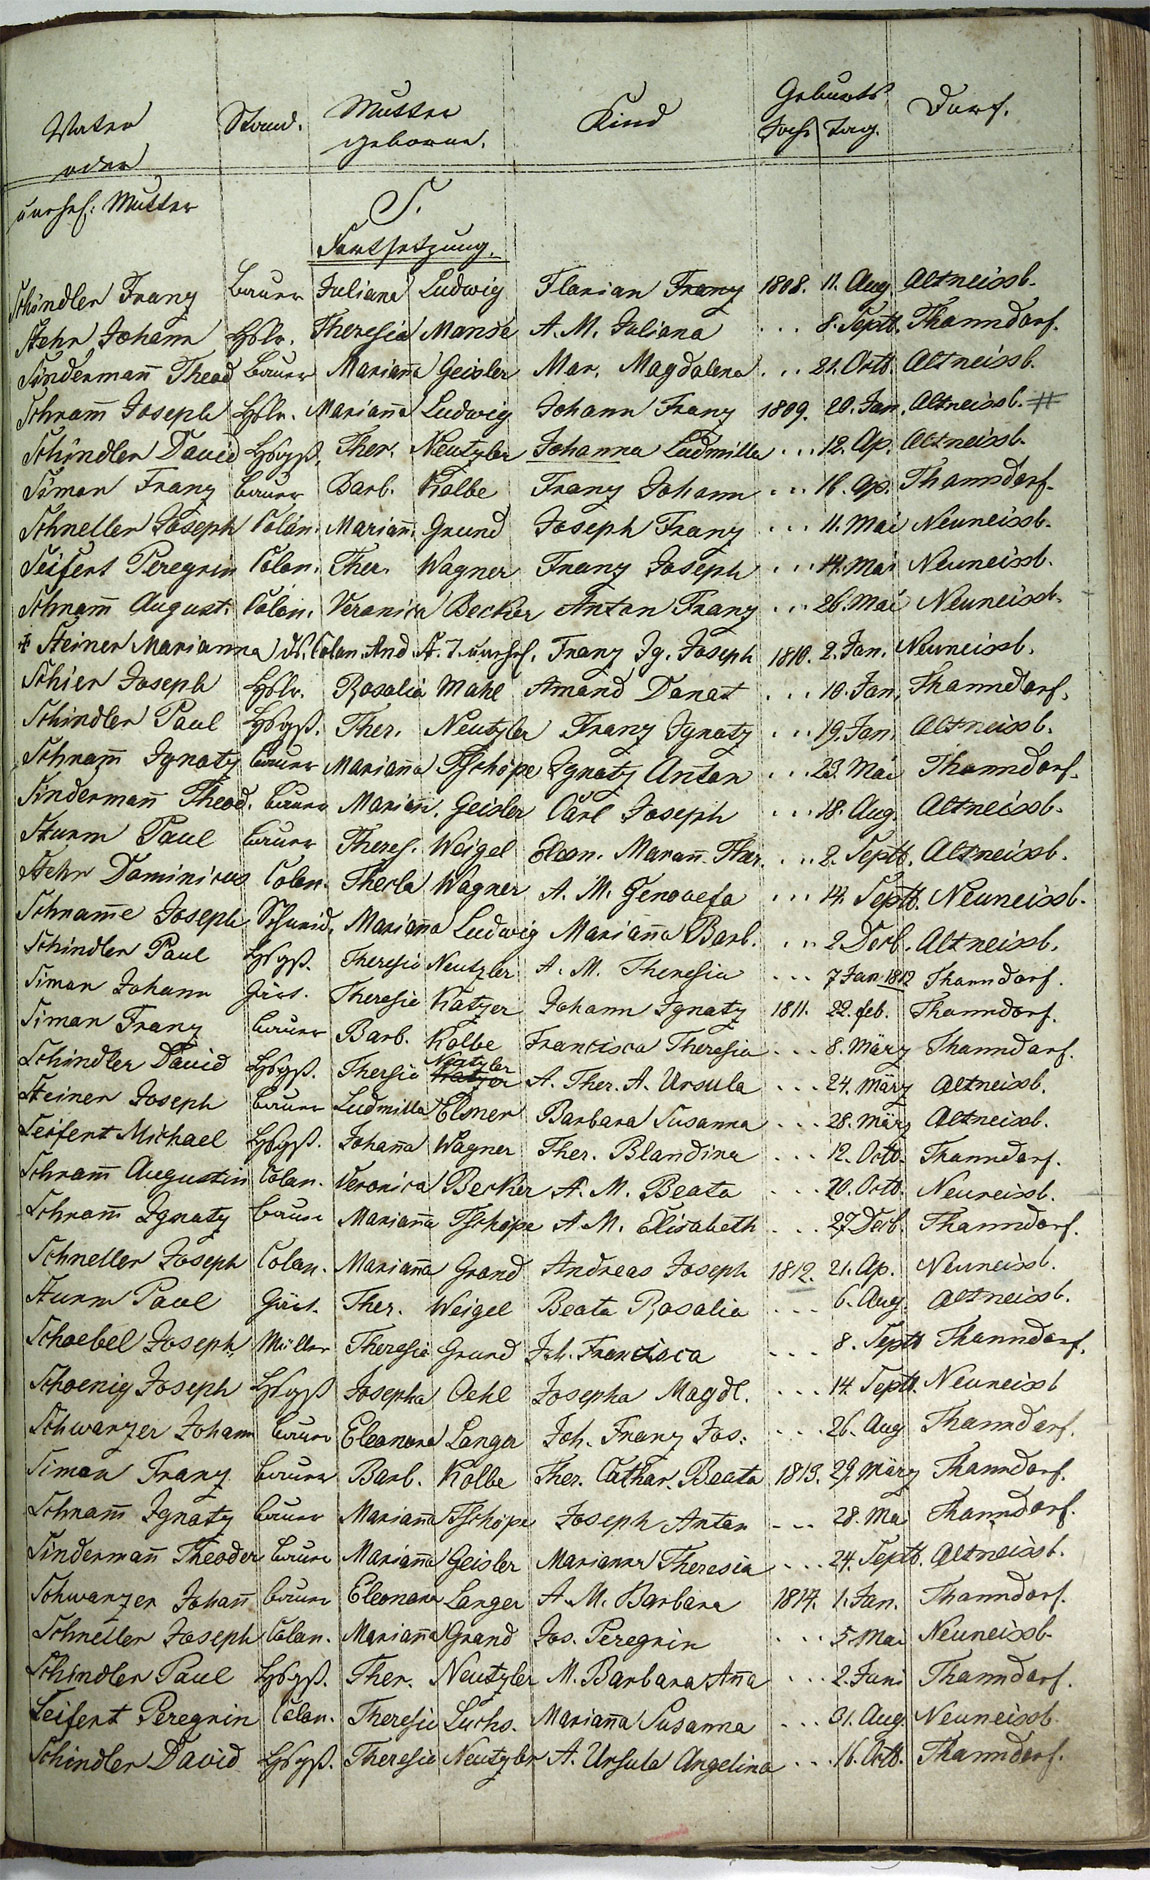 Vater Stand. Mutter Kind Geburts Dorf.
oder geborne. Jahr Tag.
unehel: Mutter
S.
Fortsetzung.
Schindler Franz Bauer Juliana Ludwig Florian Franz 1808. 11. Aug Altneissb.
Stehr Johann Hslr. Theresia Manse A. M. Juliana ... 8. Septb. Thanndorf.
Sindermañ Theod Bauer Mariañа Geisler Mar. Magdalena ... 21. Octb. Altneissb.
Schram̄ Joseph Hslr. Mariaña Ludwig Johann Franz 1809. 20. Jan. Altneissb. #
Schindler David Hsgß. Ther. Neutzler Johanna Ludmilla ... 12. Ap. Altneissb.
Simon Franz Bauer Barb. Kolbe Franz Johann ... 16. Ap. Thanndorf.
Schneller Joseph Colon. Mariañ. Grund Joseph Franz ... 11. Mai Neuneissb.
Seifert Peregrin Colon. Ther. Wagner Franz Joseph ... 14. Mai Neuneissb.
Schram̄ August. Colon. Veronica Becker Anton Franz ... 26. Mai Neuneissb.
Steiner Marianna ds. Colon And St. T. unehel. Franz Ig. Joseph 1810. 2. Jan. Neuneissb.
Schier Joseph Hslr. Rosalia Mahl Amand Donat ... 10. Jan. Thanndorf.
Schindler Paul Hsgß. Ther. Neutzler Franz Ignatz ... 19. Jan. Altneissb.
Schram̄ Ignatz Bauer Mariaña Tschöpe Ignatz Anton ... 23. Mai Thanndorf.
Sindermañ Theod. Bauer Mariañ. Geisler Carl Joseph ... 18. Aug. Altneissb.
Sturm Paul Bauer Theres. Weigel Eleon. Mariañ. Ther. ... 2. Septb. Altneissb.
Stehr Dominicus Colon. Thecla Wagner A. M. Genovefa ... 14. Septb. Neuneissb.
Schram̄e Joseph Schmid. Mariaña Ludwig Mariaña Barb. ... 2 Decb. Altneissb.
Schindler Paul Hsgß. Theresia Neutzler A. M. Theresia ... 7 Jan 1812 Thanndorf.
Simon Johann Gärt. Theresia Katzer Johann Ignatz 1811. 22. feb. Thanndorf.
Simon Franz Bauer Barb. Kolbe Francisca Theresia ... 8. März Thanndorf.
Schindler David Hsgß. Thersia Neutzler Katzer A. Ther. A. Ursula ... 24. März Altneissb.
Steiner Joseph Bauer Ludmilla Elsner Barbara Susanna ... 28. März Altneissb.
Seifert Michael Hsgß. Johaña Wagner Ther. Blandina ... 12. Octb. Thanndorf.
Schram̄ Augustin Colon. Veronica Becker A. M. Beata ... 20. Octb. Neuneissb.
Schram̄ Ignatz Bauer Mariaña Tschöpe A. M. Elisabeth ... 27 Decb. Thanndorf.
Schneller Joseph Colon. Mariaña Grond Andreas Joseph 1812. 21. Ap. Neuneissb.
Sturm Paul Gärt. Ther. Weigel Beata Rosalia ... 6. Aug. Altneissb.
Schoebel Joseph. Müller Theresia Grund Joh. Francisca ... 8. Septb Thanndorf.
Schoenig Joseph Hsgß Josepha Oehl Josepha Magdl. ... 14. Septb. Neuneissb
Schwarzer Johann Bauer Eleonora Langer Joh. Franz Jos: ... 26. Aug Thanndorf.
Simon Franz Bauer Barb. Kolbe Ther. Cathar. Beata 1813. 29. März Thanndorf.
Schram̄ Ignatz Bauer Mariaña Tschöpe Joseph Anton ... 28. Mai Thanndorf.
Sindermañ Theodor Bauer Mariaña Geisler Marianna Theresia ... 24. Septb. Altneissb.
Schwarzer Johañ Bauer Eleonora Langer A. M. Barbara 1814. 1. Jan. Thanndorf.
Schneller Joseph Colon. Mariaña Grond Jos. Peregrin ... 5. Mai Neuneissb.
Schindler Paul Hsgß. Ther. Neutzler M. Barbara Aña ... 2. Juni Thanndorf.
Seifert Peregrin Colon. Theresia Luchs. Mariaña Susanna ... 31. Aug. Neuneissb.
Schindler David Hsgß. Theresia Neutzler A. Ursula Angelina ... 16. Octb. Thanndorf.